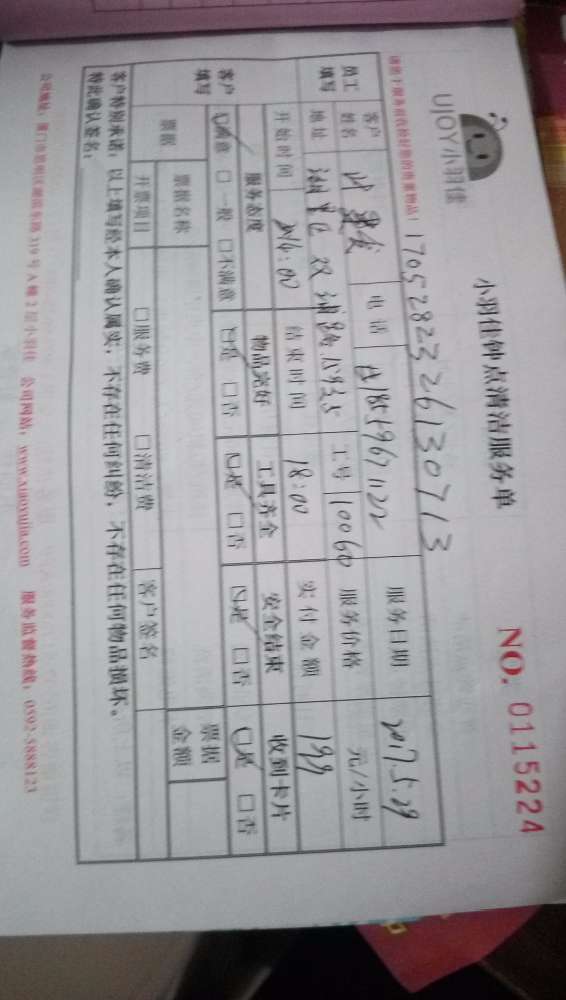 UJOY小羽佳
小羽佳钟点清洁服务单
NO. 0115224
1705282326130713
请您于服务前收拾好您的贵重物品!
员工填写 客户姓名 电话 服务日期 2017.5.29
地址 湖里区双浦路 工号 10060 服务价格 元/小时
开始时间 14:00 结束时间 18:00 实付金额 199
客户填写 服务态度 物品完好 工具齐全 安全结束 收到卡片
☑满意 □一般 □不满意 ☑是 □否 ☑是 □否 ☑是 □否 ☑是 □否
票据 票据名称 票据金额
开票项目 □服务费 □清洁费 客户签名
客户特别承诺:以上填写经本人确认属实,不存在任何纠纷,不存在任何物品损坏。
特此确认签名:
公司网站:www.xiaoyujia.com 服务监督热线:0592-5888123